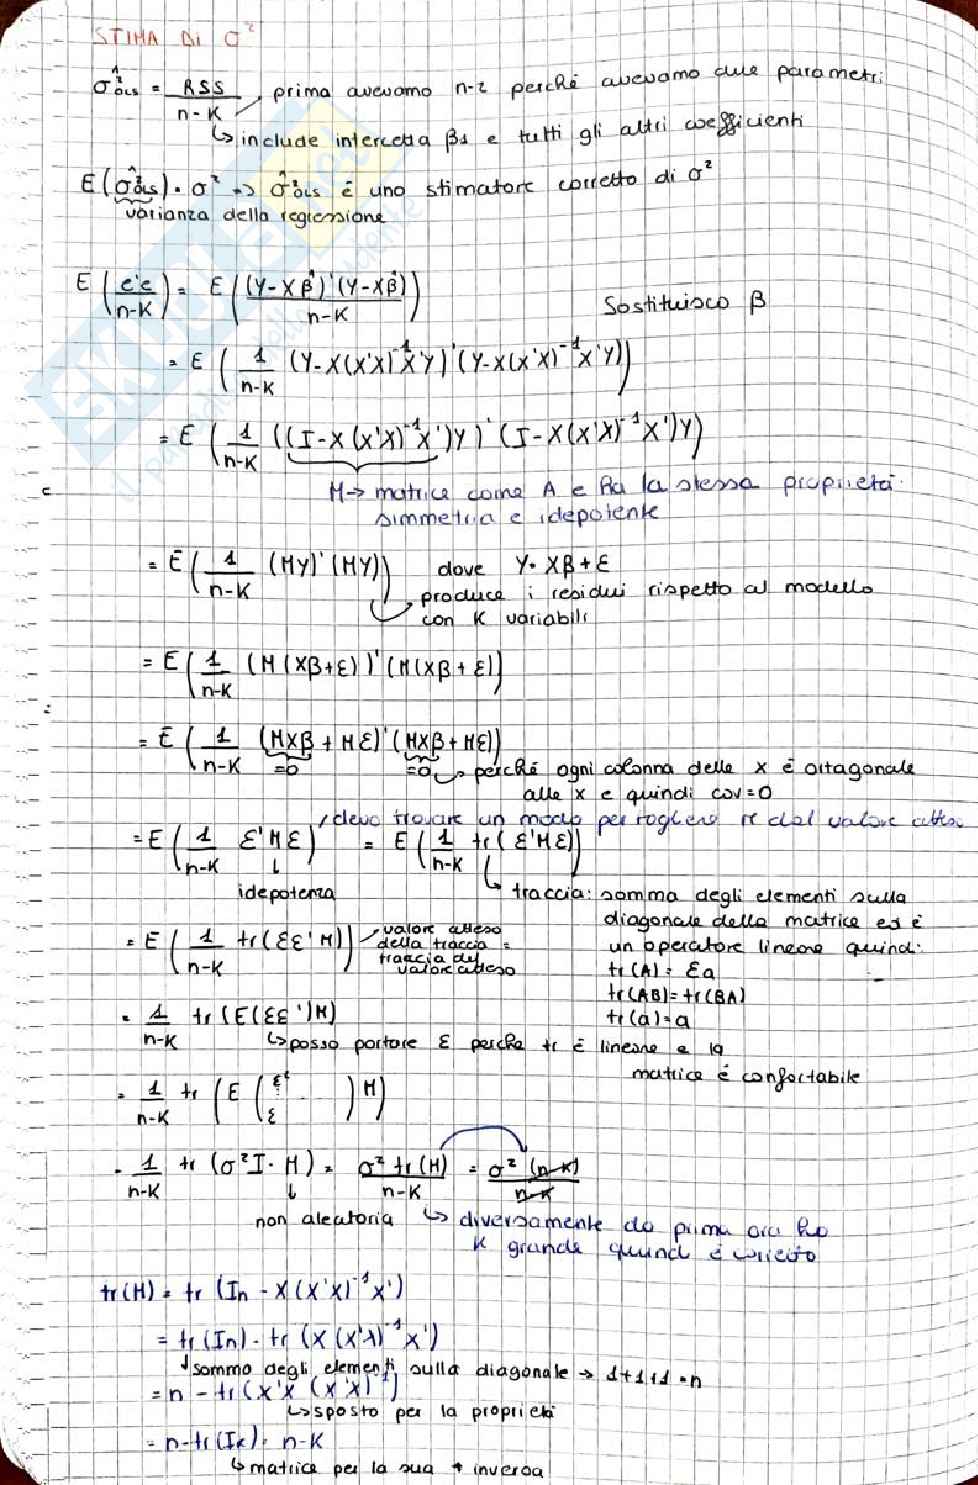 STIMA DI σ²
σ̂²ols = RSS / n-K , prima avevamo n-2 perché avevamo due parametri
↳ include intercetta β1 e tutti gli altri coefficienti
E(σ̂²ols) = σ² => σ̂²ols è uno stimatore corretto di σ²
varianza della regressione
E(e'e / n-K) = E((Y-Xβ̂)'(Y-Xβ̂) / n-K)
Sostituisco β
= E(1/n-K (Y-X(X'X)⁻¹X'Y)'(Y-X(X'X)⁻¹X'Y))
= E(1/n-K ((I-X(X'X)⁻¹X')Y)'(I-X(X'X)⁻¹X')Y)
M-> matrice come A e ha la stessa proprietà
simmetria e idepotente
= E(1/n-K (MY)'(MY)) dove Y= Xβ+ε
produce i residui rispetto al modello
con K variabili
= E(1/n-K (M(Xβ+ε))'(M(Xβ+ε))
= E(1/n-K (MXβ + Mε)'(MXβ + Mε))
=0 =0 ↳ perché ogni colonna delle x è ortagonale
alle x e quindi cov=0
devo trovare un modo per togliere M dal valore atteso
= E(1/n-K ε'Mε) = E(1/n-K tr(ε'Mε))
idepotenza
↳ traccia: somma degli elementi sulla
diagonale della matrice ed è
un operatore lineare quindi:
tr(A) = Σa
tr(AB)=tr(BA)
tr(a)=a
= E(1/n-K tr(εε'M)) valore atteso
della traccia =
traccia del
valore atteso
= 1/n-K tr(E(εε')M)
↳ posso portare E perché tr è lineare e la
matrice è confortabile
= 1/n-K tr(E( )M)
= 1/n-K tr(σ²I·M) = σ² tr(M) / n-K = σ² (n-K) / n-K
non aleatoria ↳ diversamente da prima ora ho
K grande quindi è corretto
tr(M) = tr(In - X(X'X)⁻¹X')
= tr(In) - tr(X(X'X)⁻¹X')
↓ somma degli elementi sulla diagonale → 1+1+1=n
= n - tr(X'X(X'X)⁻¹)
↳ sposto per la proprietà
= n-tr(Ik) = n-K
↳ matrice per la sua inversa